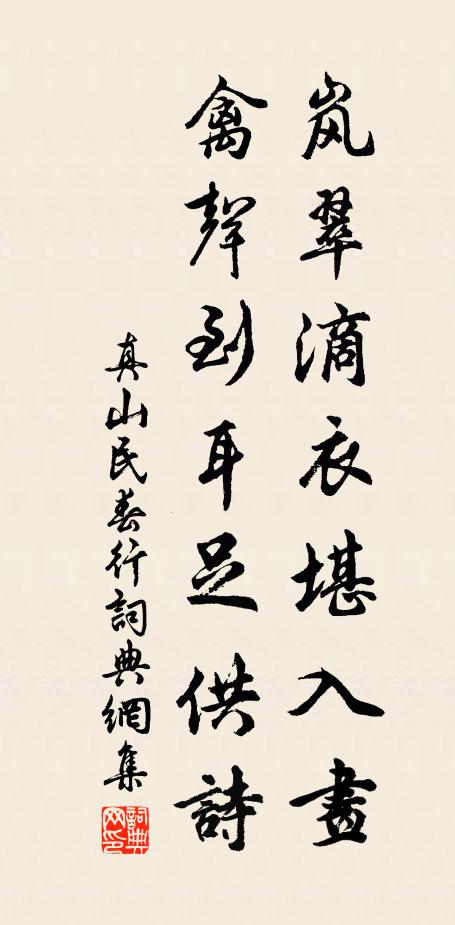 岚翠滴衣堪入畫
禽聲到耳足供詩
真山民春行詞典網集
詞典网印